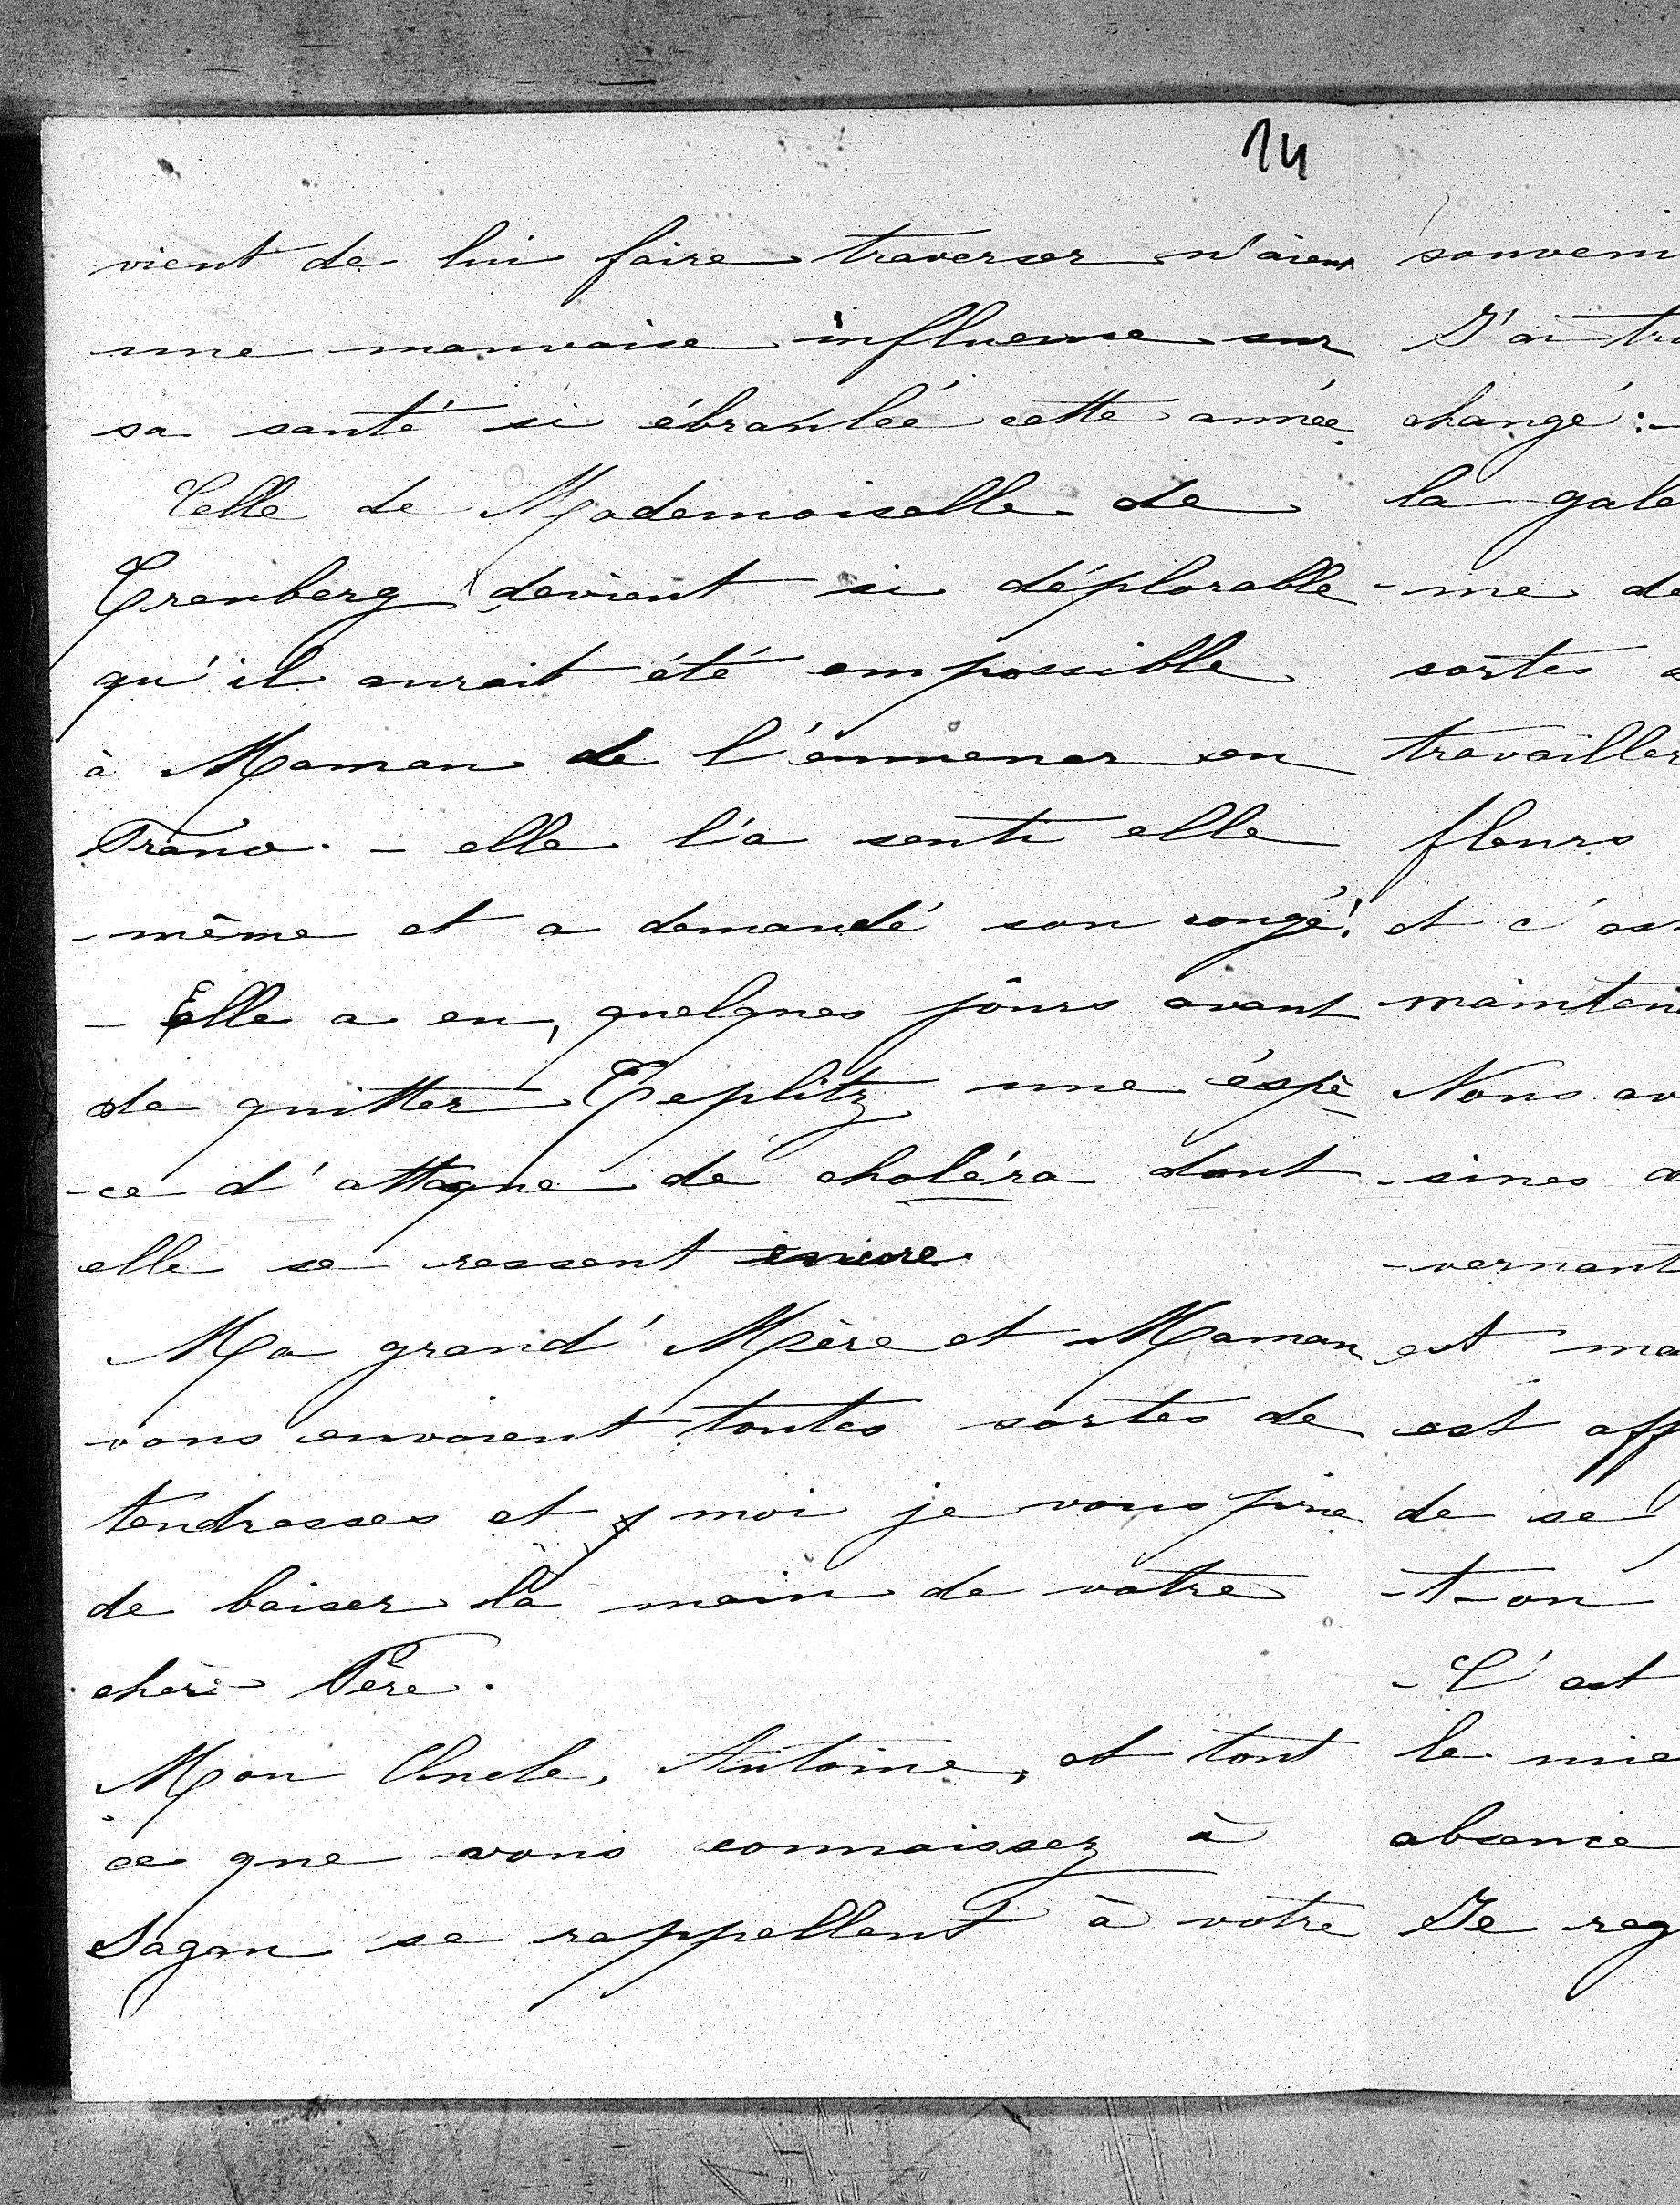 14
vient de lui faire traverser n'aient
une mauvaise influence sur
sa santé si ébranlée cette année.
Celle de Mademoiselle de
Trenberg devient si déplorable
qu'il aurait été impossible
à Maman de l'emmener en
France. - elle l'a senti elle
-même et a demandé son congé!
- Elle a eu, quelques jours avant
de quitter Teplitz une éspè
-ce d'attaque de choléra dont
elle se ressent encore.
Ma grand' Mère et Maman
vous envoient toutes sortes de
tendresses et moi je vous prie
de baiser la main de votre
chèr Père.
Mon Oncle, Antoine, et tout
ce que vous connaissez à
Sagan se rappellent à votre
souveni
J'ai tro
changé :-
la gale
-me de
sortes s
travailler
fleurs
et c'est
mainten
Nous av
-sines d
-vernant
est ma
est aff
de se
-t-on
- C'est
le mie
absence
Je reg